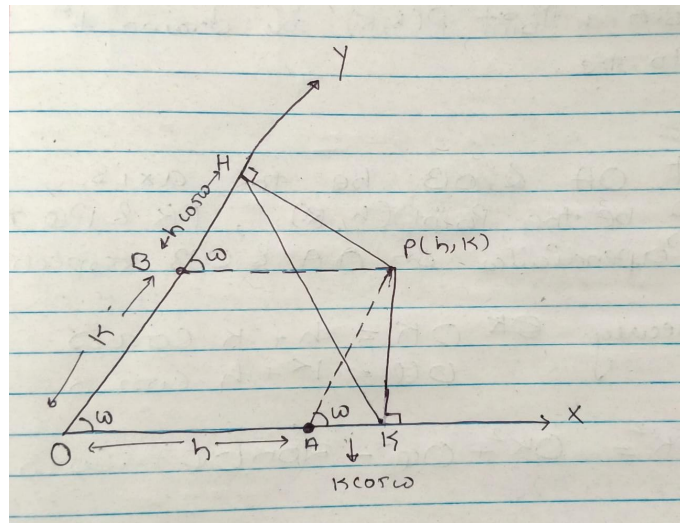 Y
H
← h cos ω →
B
ω
P(h, K)
K
ω
ω
X
O
← h →
A
K
K cos ω